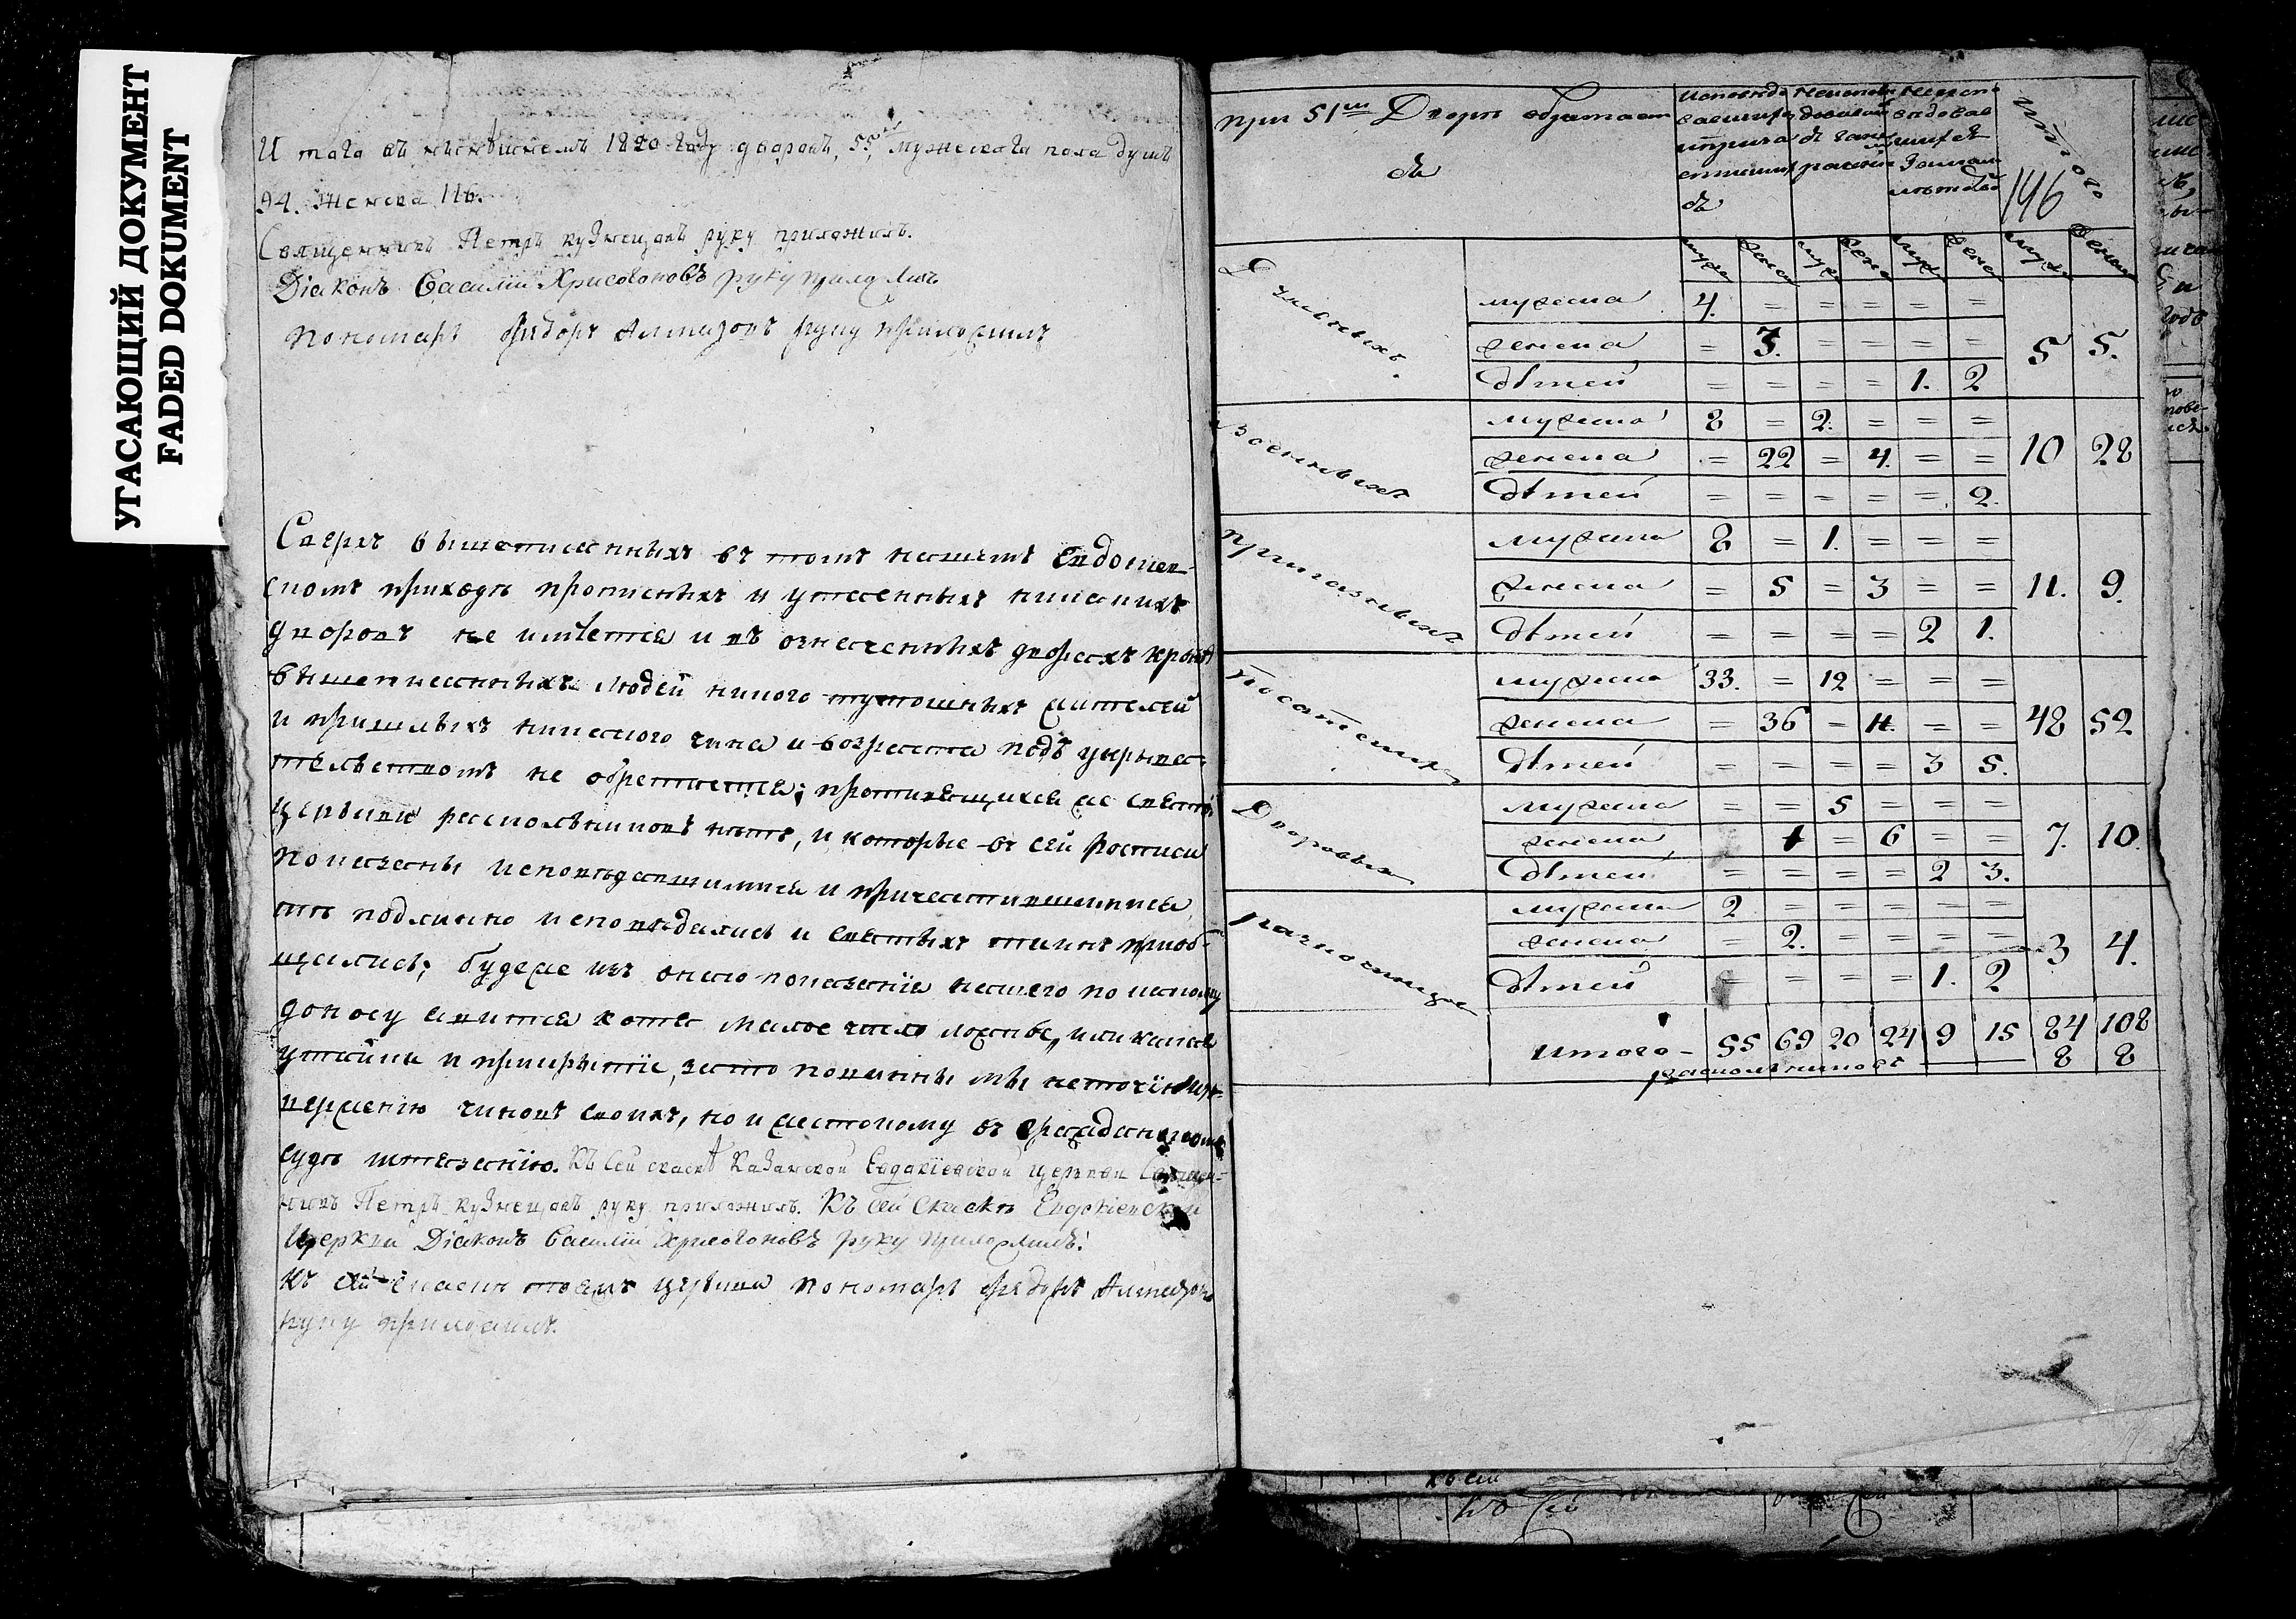 УГАСАЮЩИЙ ДОКУМЕНТ
FADED DOKUMENT
И того въ нынѣшнемъ 1820 году дворовъ, 55, мужескаго пола душъ
94. Женска 116.
Священникъ Петръ Кузнецовъ руку приложилъ.
Діаконъ Василій Хрисогоновъ руку приложилъ
Пономарь Ѳедоръ Алмазовъ руку приложилъ
Сверхъ вышеписанныхъ въ томъ нашемъ Евдокіев-
скомъ приходѣ прописныхъ и утаенныхъ никакихъ
дворовъ не имѣется и въ означенныхъ дворахъ кромѣ
вышеписанныхъ людей никого тутошнихъ жителей
и пришлыхъ никакого чина и возраста подъ укрыва-
тельствомъ не обретается; противящихся же святой
церкви раскольниковъ нѣтъ, и которые въ сей росписи
показаны исповѣдавшимися и причастившимися
тѣ подлинно исповѣдались и святыхъ таинъ приоб-
щались; буде же изъ онаго показанія нашего по чьему
доносу явится хотя малое что ложное, или какая
утайка и прикрытіе, за что повинны мы не точію из-
верженію чиновъ своихъ, но и жестокому въ гражданскомъ
судѣ истязанію. Къ сей сказкѣ Казанской Евдокіевской церкви Священ-
никъ Петръ Кузнецовъ руку приложилъ. Къ сей сказкѣ Евдокіевской
Церкви Діаконъ Василій Хрисогоновъ руку приложилъ.
Къ сей сказкѣ тоежъ церкви пономарь Ѳедоръ Алмазовъ
руку приложилъ.
при 51м Дворѣ обретает
съ
Исповѣдо
вавшихся
и прича
стивших
съ
Неиспов
довавшихся
раченіи
Неиспо
вѣдовав
шихся
За мал
лѣтство
Итого
146
муже женс муже женс муже женс муже женс
Духовныхъ
мужеска 4. = = = = =
женска = 3. = = = =
дѣтей = = = = 1. 2
5 5.
Военныхъ
мужеска 8 = 2. = = =
женска = 22 = 4. = =
дѣтей = = = = = 2.
10 28
Приказныхъ
мужеска 8 = 1. = = =
женска = 5 = 3 = =
дѣтей = = = = 2 1.
11. 9.
Посатскихъ
мужеска 33. = 12 = = =
женска = 36 = 11. = =
дѣтей = = = = 3 5.
48 52
Дворовыя
мужеска = = 5 = = =
женска 1 = 6 = =
дѣтей = = = = 2 3.
7. 10.
Разночинцы
мужеска 2 = = = = =
женска = 2. = = = =
дѣтей = = = 1. 2
3 4.
Итого - 55 69 20 24 9 15 84 108
раскольниковъ 8 8